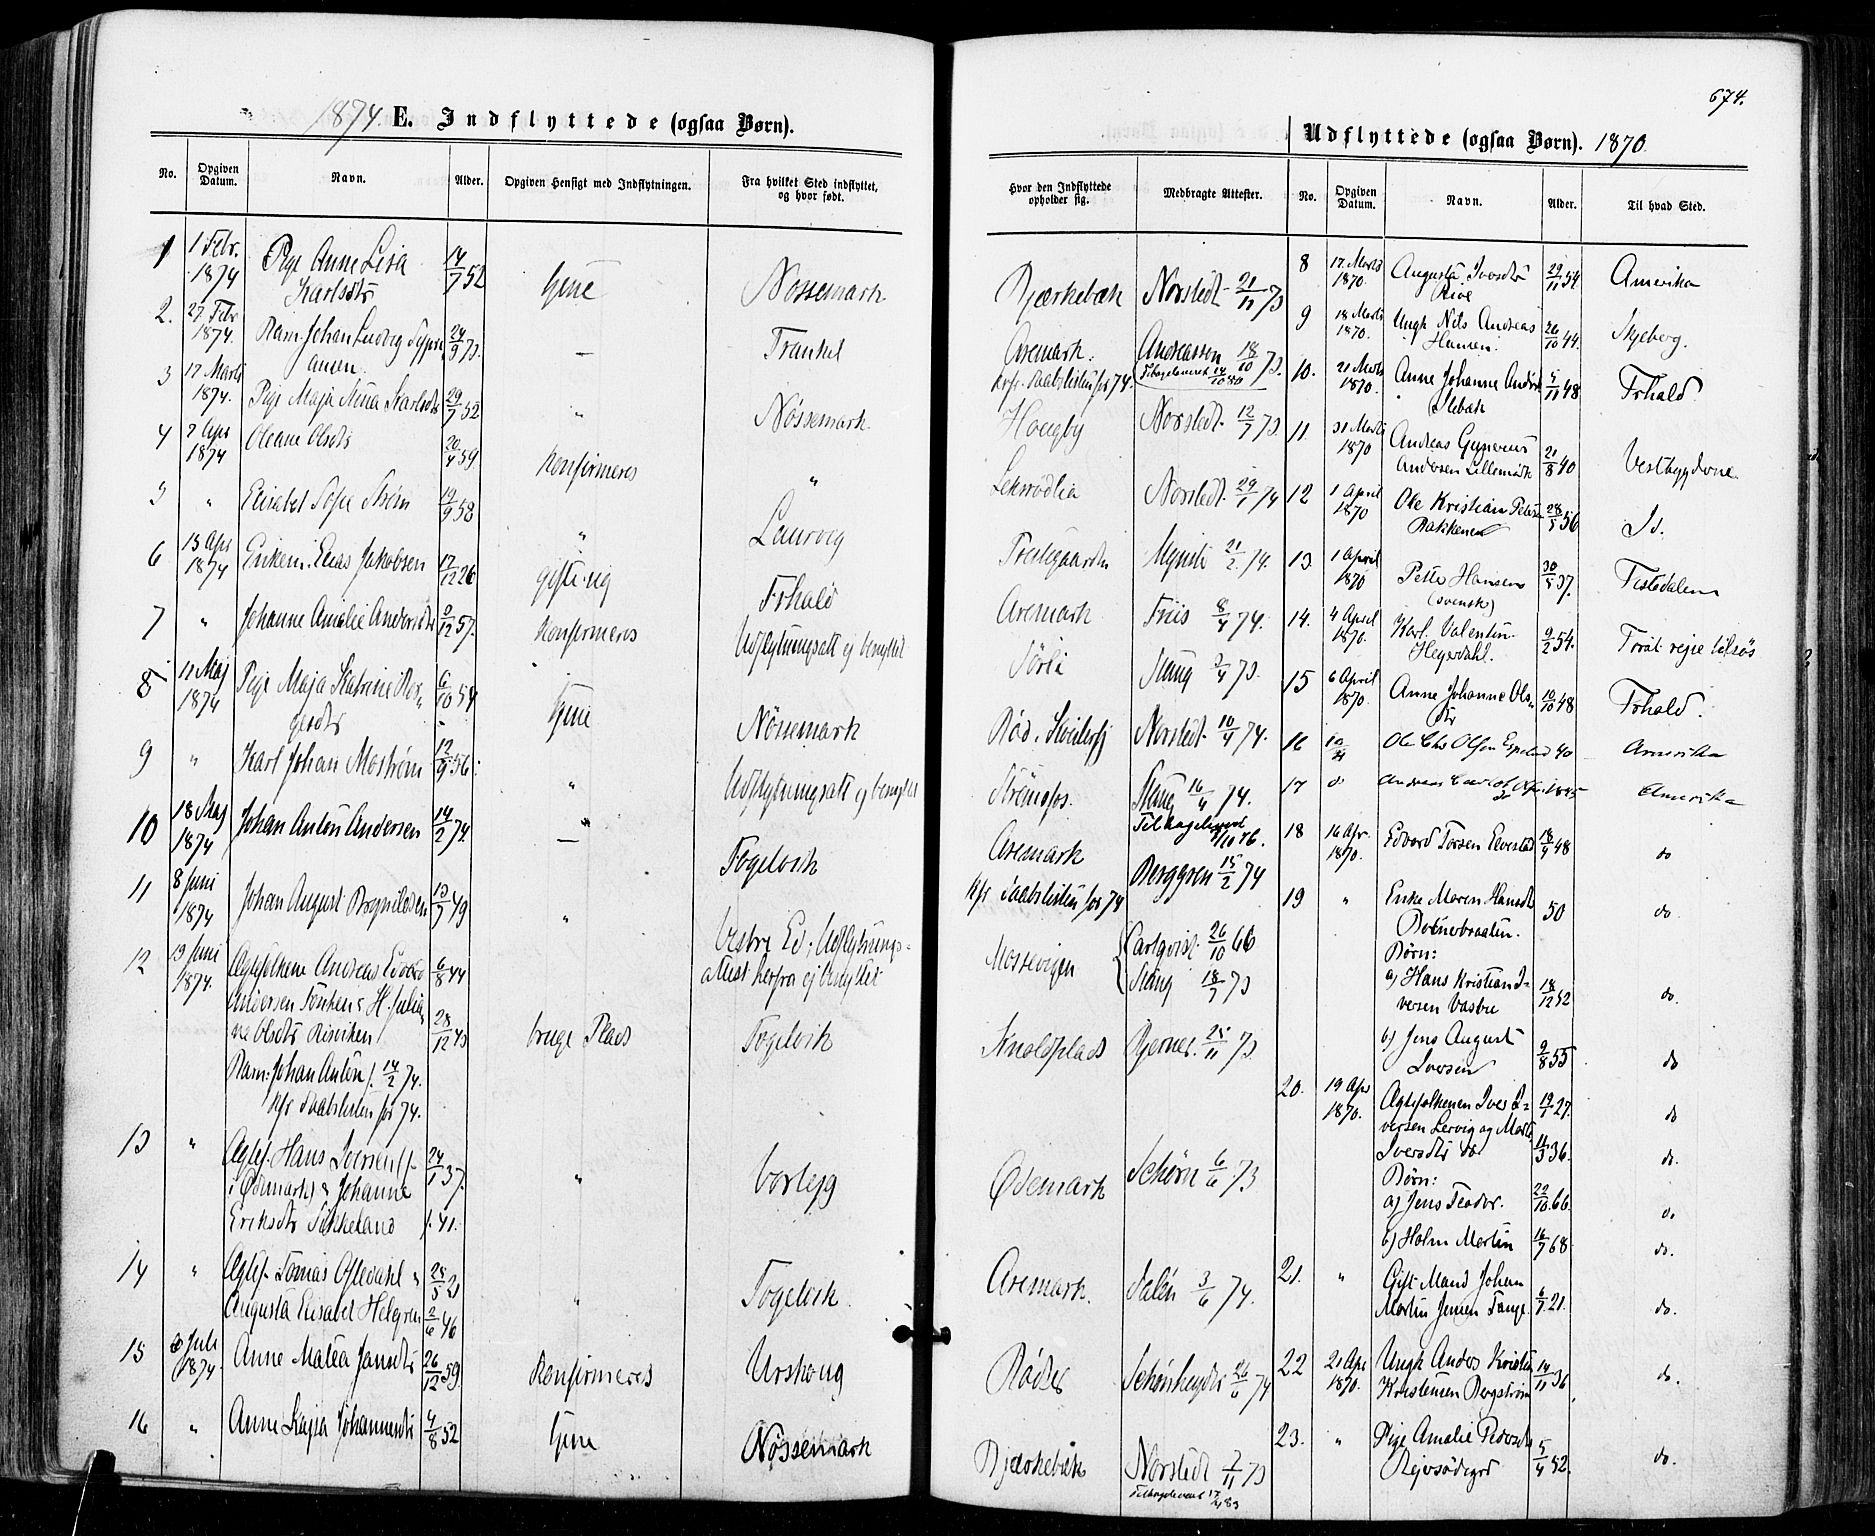 674.
1874. E. Indflyttede (ogsaa Børn).
Udflyttede (ogsaa Børn). 1870
No.
Opgiven Datum.
Navn.
Alder.
Opgiven Hensigt med Indflytningen.
Fra hvilket Sted indflyttet, og hvor født.
Hvor den Indflyttede opholder sig.
Medbragte Attester.
No.
Opgiven Datum.
Navn.
Alder.
Til hvad Sted.
1 1 Febr. Pige Anne Lisa 14/7 52 tjene Nössemark Bjærkebæk Norstedt 21/11 73
1874 Karlsdtr
2. 27 Febr 1874. Barn: Johan Ludvig 24/9 73. — Trankil Aremark. Andreassen 18/10 73.
ansen. Tilbageleveret 14/10 80
Kfr. Daabslisten for 74.
3 17 Marts 1874. Pige Maja Stina Karlsdtr 29/7 52 " Nössemark. Hougby Norstedt 12/7 73
4 7 Apr 1874 Oleane Olsdtr 20/4 59 Konfirmeres " Norstedt 29/1 74
5 " Elisabet Sofie Strøm 19/9 58 " Laurvig Prestegaarden Mynster 21/2 74.
6 15 Apr 1874 Enkem. Elias Jakobsen 17/12 26 gifte sig Frhald Aremark Friis 8/4 74.
7 " Johanne Amalie Andersdtr 9/12 57. Konfirmeres Udflytningsatt ej benyttet Sørli Stang 3/4 73.
8 11 Maj 1874 Pige Maja Katrine Bør- 6/10 54 tjene Nössemark Rød Norstedt 10/4 74.
gesdtr
9 " Karl Johan Moström 12/9 56. " Udflytningsatt ej benyttet Strømsfos. Stang 16/4 74.
Tilbageleveret /10 76.
10 18 Maj 1874 Johan Anton Andersen 14/2 74. — Fogelvik Aremark Berggren 15/2 74
Kfr Daabslisten for 74
11 8 Juni 1874 Johan August Brynildsen 13/7 49 " Vestre Ed; Udflytnings- Mossevigen Carlqvist 26/10 66
attest herfra ej benyttet Stang 18/7 73
12 13 Juni 1874. Ægtefolkene Andreas Edvard 6/8 44
Andersen H. Julia-
ne Olsdtr Risviken 28/12 43 bruge Plads Fogelvik Bjerner 25/11 73
Barn: Johan Anton f. 14/2 74.
Kfr Daabslisten for 74.
13 " Ægtef. Hans Iversen (f. 24/1 37. " Vorlejg Ødemark Schørn 6/6 73
i Ødemark) & Johanne
Eriksdtr Sikkeland f. 41.
14 " Ægtef. Tomas Ofledahl & 25/5 21 " Fogelvik. Aremark. Salén 3/6 74.
Augusta Elisabet Helgren 2/6 46
15 Juli 1874. Anne Matea Jansdtr 26/12 59. Konfirmeres Urskoug Rødse Schønheyder 26/6 74
16 " Anne Kajsa Johannesdtr 4/8 52 tjene Nøssemark Bjærkebæk Norstedt 7/11 73
Tilbageleveret 17/4 83
8 17 Marts 1870. Augusta Iversdtr 29/11 54 Amerika
Rive
9 18 Marts 1870. Ungk Nils Andreas 26/10 44. Skjeberg.
Hansen.
10. 21 Marts 1870. Anne Johanne Andersd 5/11 48 Frhald
Slebæk
11. 31 Marts 1870 Andreas Gunerius
Andersen Lillemark 21/8 40 Vestbygdene
12 1 April 1870 Ole Kristian Peters. 28/5 56 Id.
Bakkene
13 1 April 1870 Petter Hansen 30/5 37. Tistedalen
(svensk)
14. 4 April 1870. Karl Valentin 9/2 54. Foral. rejse tilsøs
Heyerdahl.
15 6 April 1870. Anne Johanne Ols- 10/10 48 Frhald.
dtr
16 Ole Chr Olsen 40 Amerika
17 do Andreas 1845 Amerika
18 16 Apr. 1870. Edvard Torsen 18/4 48 do
19 " Enke Maren Hansdtr 50 do.
Bønerbraaten.
Børn:
a) Hans Kristian I- 18/12 52 do.
versen Vasbu
b) Jens August 9/8 55 do
Iversen
20. 19 Apr 1870. Ægtefolkene Iver I- 19/1 27. do
versen Lervig og Marte
Iversdtr do 14/3 36. do.
Børn:
a) Jens Teodor. 22/10 66. do
b) Holm Martin 16/7 68. do.
21. " Gift Mand Johan
Martin Jensen Tange 6/7 21. do.
22 21 Apr 1870. Ungk Anders Kristian 14/11 36 do.
Kristensen Bergstrøm
23. " Pige Amalie Pedersdtr 5/4 52. do.
Rejersødegrd